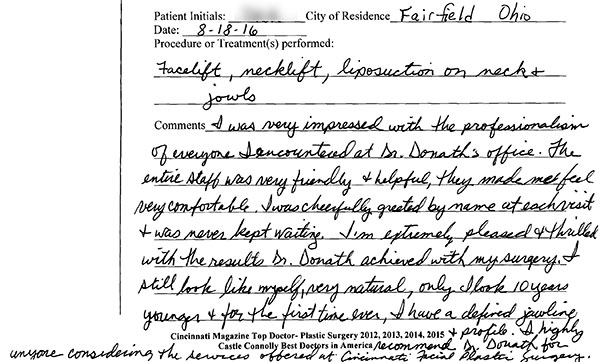 Patient Initials: City of Residence Fairfield Ohio
Date: 8-18-16
Procedure or Treatment(s) performed:
Facelift, necklift, liposuction on neck &
jowls
Comments I was very impressed with the professionalism
of everyone I encountered at Dr. Donath's office. The
entire staff was very friendly & helpful, they made me feel
very comfortable. I was cheerfully greeted by name at each visit
& was never kept waiting. I'm extremely pleased & thrilled
with the results Dr. Donath achieved with my surgery. I
still look like myself, very natural, only I look 10 years
younger & for the first time ever, I have a defined jawline
Cincinnati Magazine Top Doctor- Plastic Surgery 2012, 2013, 2014. 2015 & profile. I highly
Castle Connolly Best Doctors in America recommend Dr. Donath for
anyone considering the services offered at Cincinnati Facial Plastic Surgery.